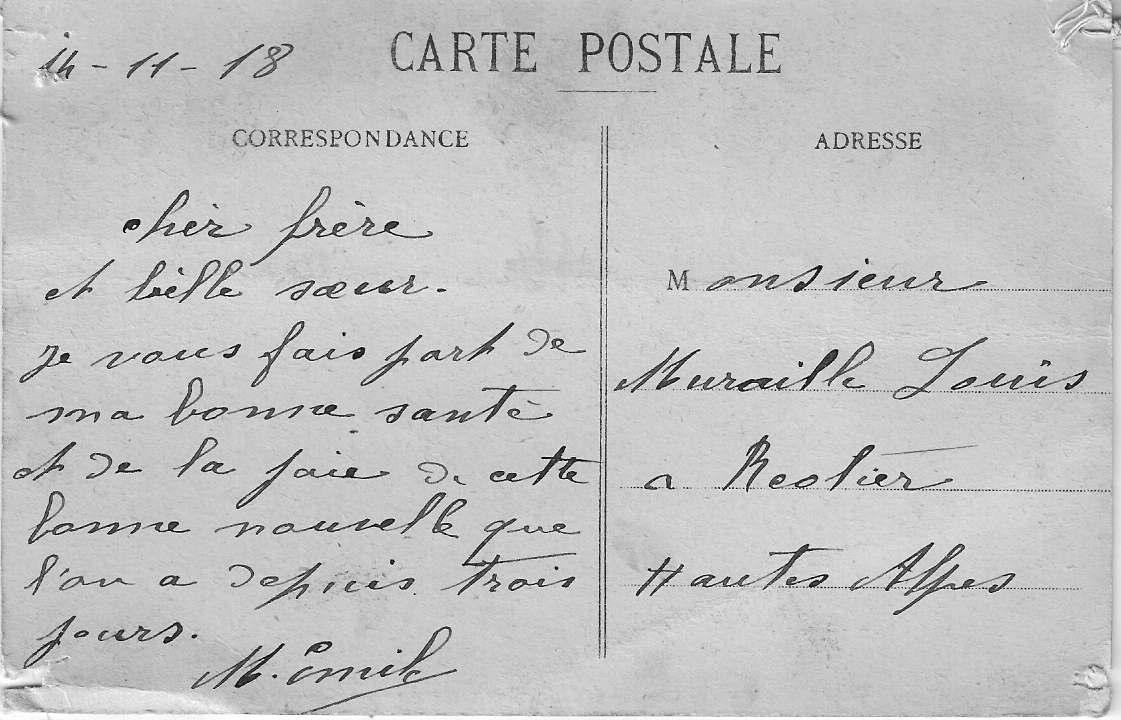 14-11-18
CARTE POSTALE
CORRESPONDANCE
cher frère
et bèlle sœur.
Je vous fais part de
ma bonne santé
et de la joie de cette
bonne nouvelle que
l'on a depuis trois
jours.
M. Emile
ADRESSE
Monsieur
Muraille Louis
a Reotier
Hautes Alpes